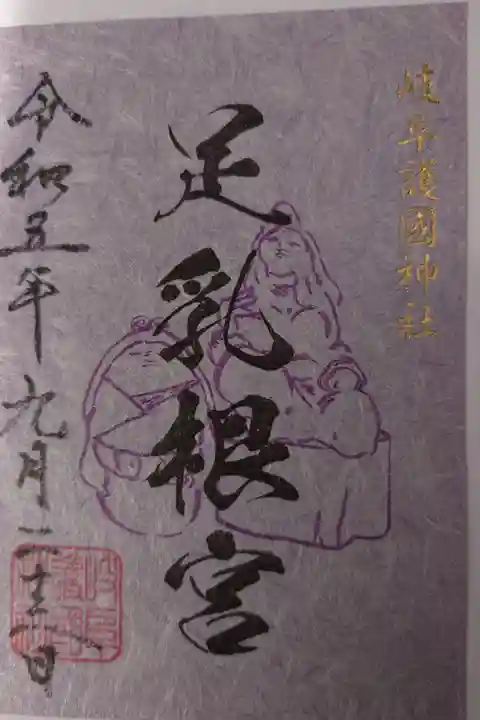 岐阜護國神社
足乳根宮
令和五年九月二十八日